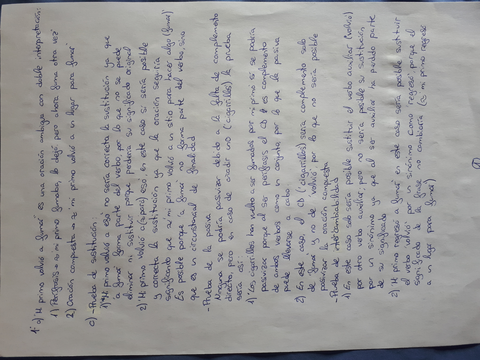 1º a) "Mi primo volvió a fumar" es una oración ambigua con doble interpretación:
1) Perífrasis → mi primo fumaba, lo dejó pero ahora fuma otra vez
2) Oración compuesta → mi primo volvió a un lugar para fumar
c) - Prueba de sustitución
1) "Mi primo volvió a eso" no sería correcta la sustitución ya que
"a fumar" forma parte del verbo, por lo que no se puede
eliminar ni sustituir porque perdería su significado original
2) "Mi primo volvió a (para) eso" en este caso sí sería posible
y correcta la sustitución ya que la oración seguiría
significando que mi primo volvió a un sitio para hacer algo (fumar)
Es posible porque "a fumar" no forma parte del verbo, sino
que es un circunstancial de finalidad
- Prueba de la pasiva
Ninguna se podría pasivizar debido a la falta de complemento
directo, pero en caso de añadir uno (cigarrillos) la prueba
sería así:
1) "Los cigarrillos han vuelto a ser fumados por mi primo" sí se podría
pasivizar porque al ser perífrasis el CD es complemento
de ambos verbos como un conjunto por lo que la pasiva
puede llevarse a cabo.
2) En este caso el CD (cigarrillos) sería complemento solo
de "fumar" y no de "volvió" por lo que no sería posible
pasivizar la oración compuesta
- Prueba de
1) En este caso solo sería posible sustituir el verbo auxiliar (volvió)
por otro verbo auxiliar, pero no sería posible su sustitución
por un sinónimo ya que al ser auxiliar ha perdido parte
de su significado
2) "Mi primo regresó a fumar" en este caso sería posible sustituir
el verbo "volvió" por un sinónimo como "regresó" porque el
significado de la frase no cambiaría (→ mi primo regresó
a un lugar para fumar)